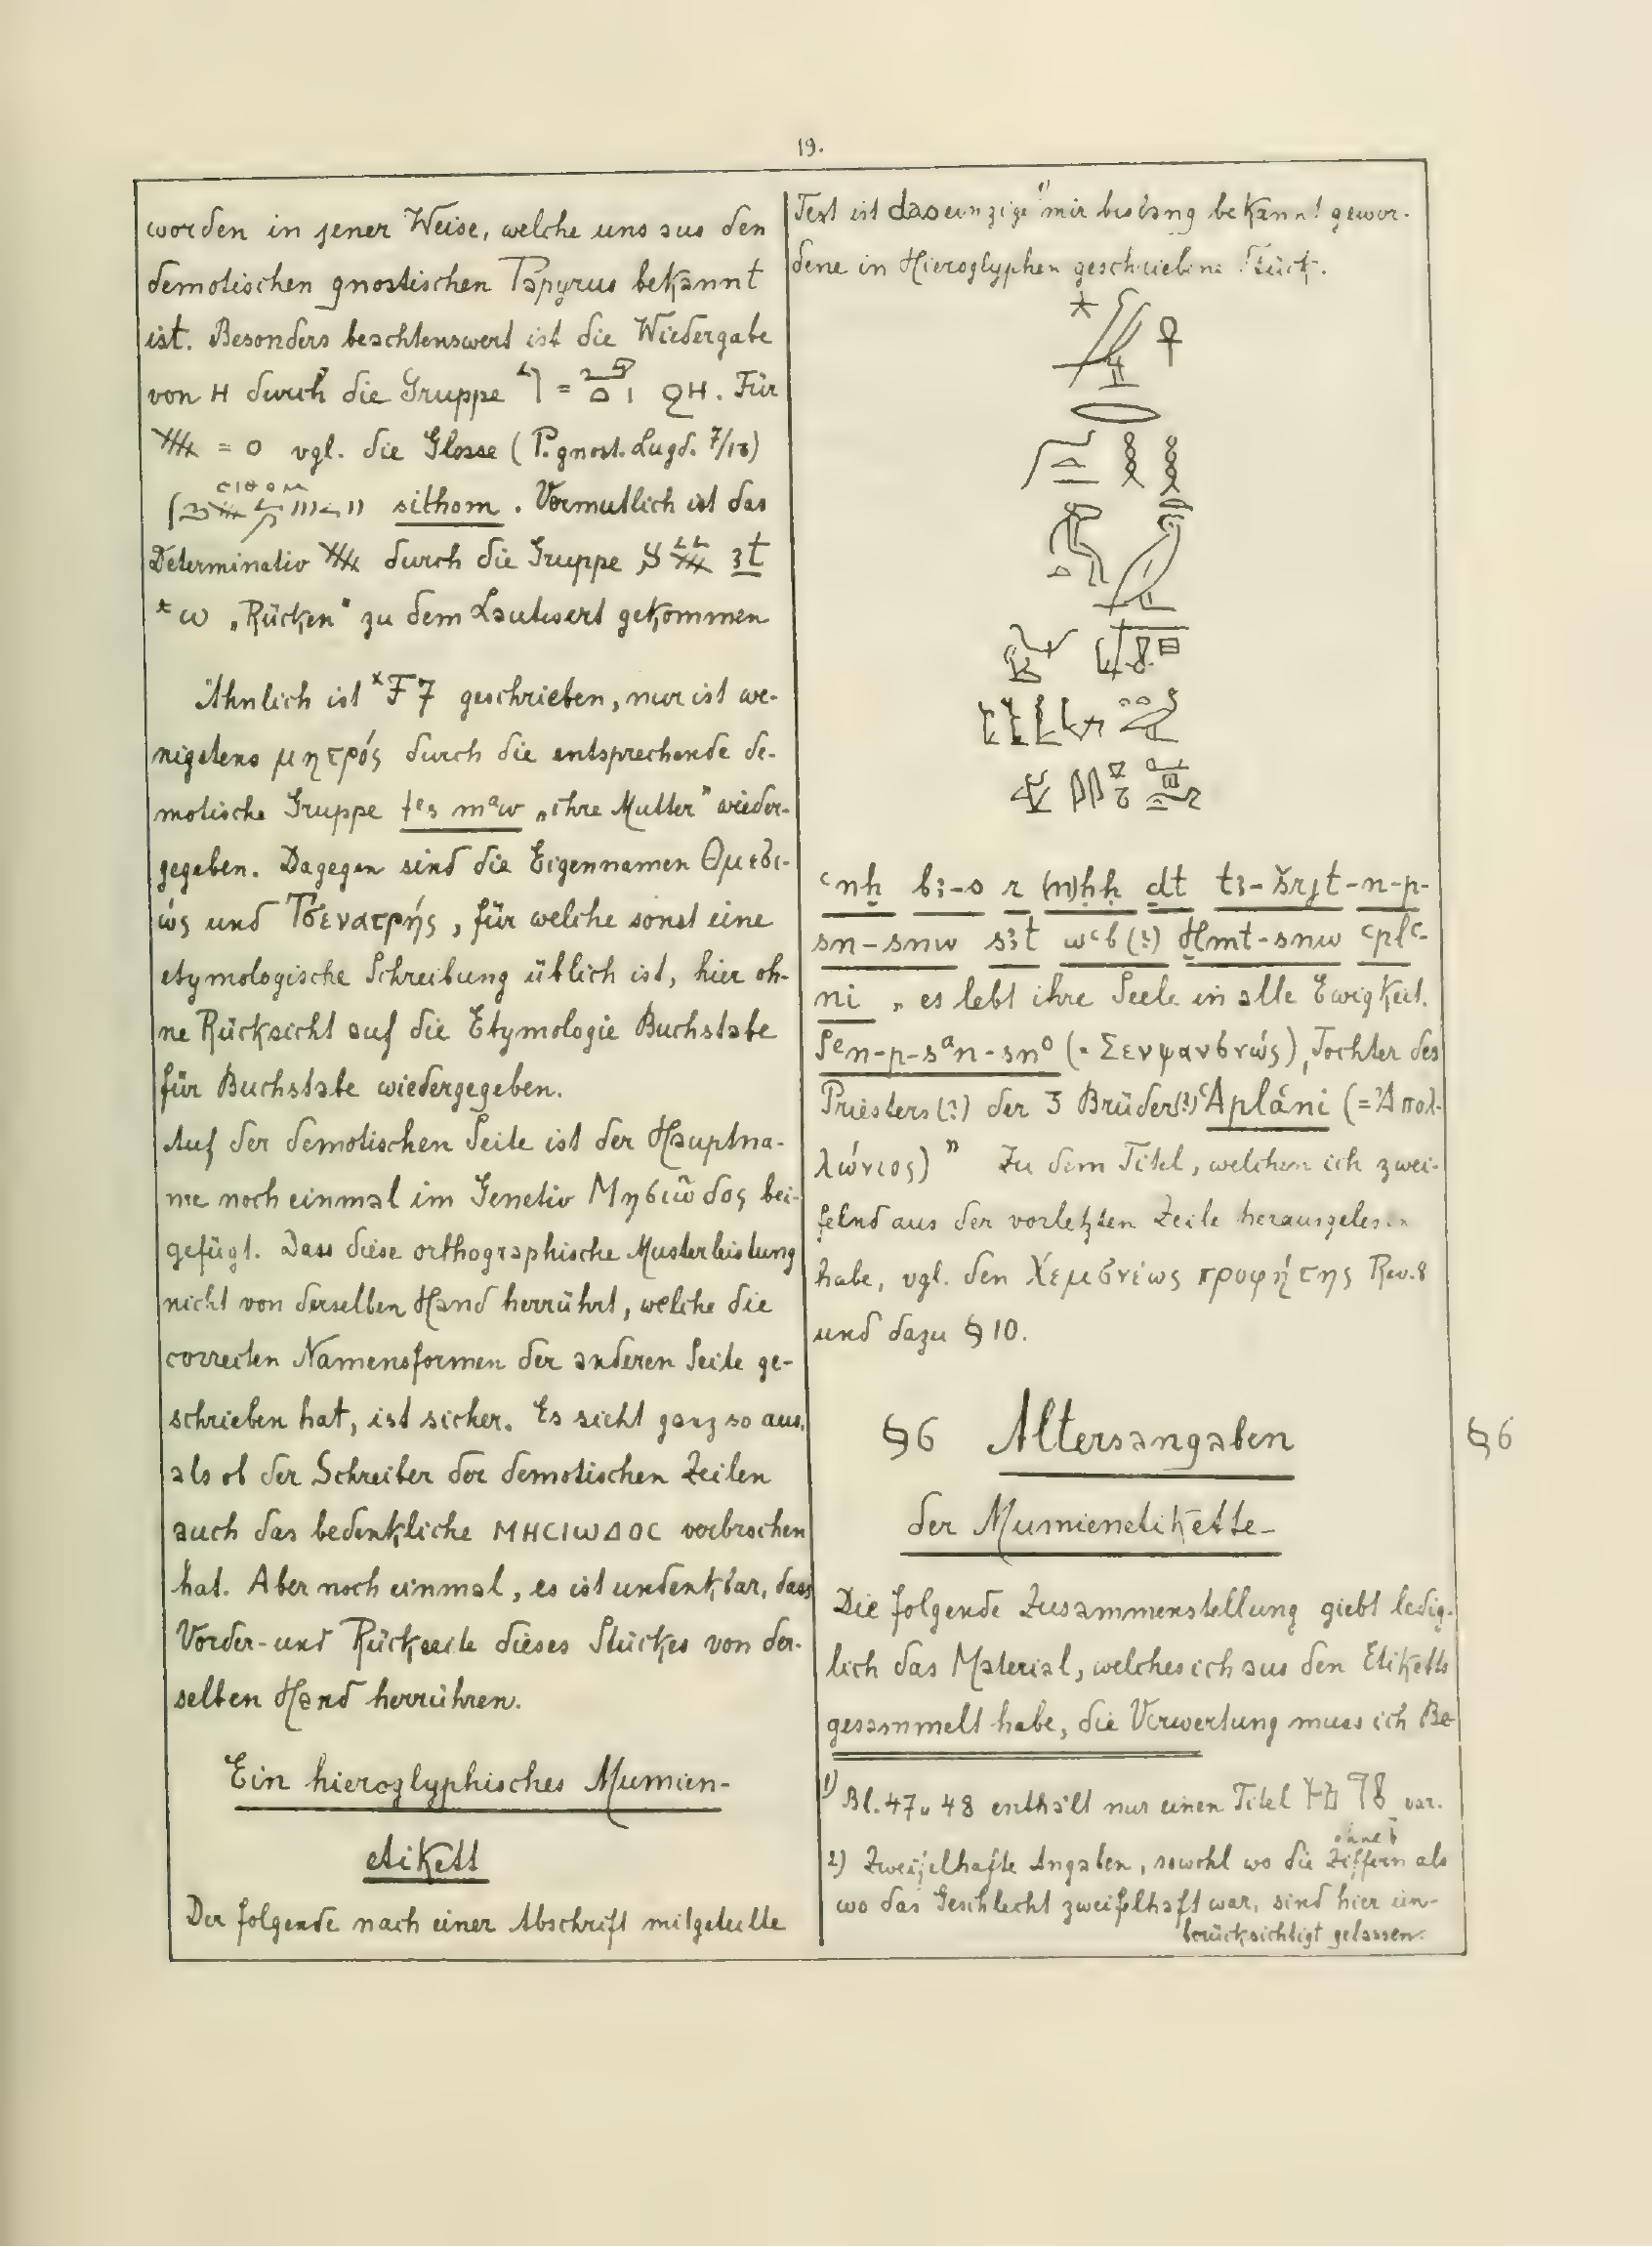 19.
worden in jener Weise, welche uns aus den
demotischen gnostischen Papyrus bekannt
ist. Besonders beachtenswert ist die Wiedergabe
von H durch die Gruppe = ϩH. Für
= o vgl. die Glosse (P. gnost. Lugd. 7/18)
ⲥⲓⲑⲟⲙ
sithom. Vermutlich ist das
Determinativ durch die Gruppe 3t
*ω „Rücken" zu dem Lautwert gekommen
Ähnlich ist *F7 geschrieben, nur ist we-
nigstens μητρός durch die entsprechende de-
motische Gruppe tᵉs mᵃw „ihre Mutter" wieder-
gegeben. Dagegen sind die Eigennamen Θμεσι-
ώς und Τσενατρῆς, für welche sonst eine
etymologische Schreibung üblich ist, hier oh-
ne Rücksicht auf die Etymologie Buchstabe
für Buchstabe wiedergegeben.
Auf der demotischen Seite ist der Hauptna-
me noch einmal im Genetiv Μησιῶδος bei-
gefügt. Dass diese orthographische Musterleistung
nicht von derselben Hand herrührt, welche die
correcten Namensformen der anderen Seite ge-
schrieben hat, ist sicher. Es sieht ganz so aus,
als ob der Schreiber der demotischen Zeilen
auch das bedenkliche ΜΗCΙωΔΟC verbrochen
hat. Aber noch einmal, es ist undenkbar, dass
Vorder- und Rückseite dieses Stückes von der-
selben Hand herrühren.
Ein hieroglyphisches Mumien-
etikett
Der folgende nach einer Abschrift mitgeteilte
Text ist das einzige ¹⁾ mir bislang bekannt gewor-
dene in Hieroglyphen geschriebene Stück.
ꜥnḫ b3-s r (n)ḥḥ ḏt t3-šrjt-n-p-
sn-snw s3t wꜥb(?) Ḫmt-snw ꜥplꜥ-
ni „es lebt ihre Seele in alle Ewigkeit.
Sᵉn-p-sᵃn-snᵒ (= Σενψανσνώς), Tochter des
Priesters(?) der 3 Brüder(?) ꜥAplâni (= Ἀπολ-
λώνιος)" Zu dem Titel, welchen ich zwei-
felnd aus der vorletzten Zeile herausgelesen
habe, vgl. den Χεμσνέως προφήτης Rev. 8
und dazu § 10.
§ 6 Altersangaben
§ 6
der Mumienetikette
Die folgende Zusammenstellung giebt ledig-
lich das Material, welches ich aus den Etiketts
gesammelt habe, die Verwertung muss ich Be-
1) Bl. 47 u 48 enthält nur einen Titel var.
2) Zweifelhafte Angaben, sowohl wo die Ziffern als
wo das Geschlecht zweifelhaft war, sind hier un-
berücksichtigt gelassen.